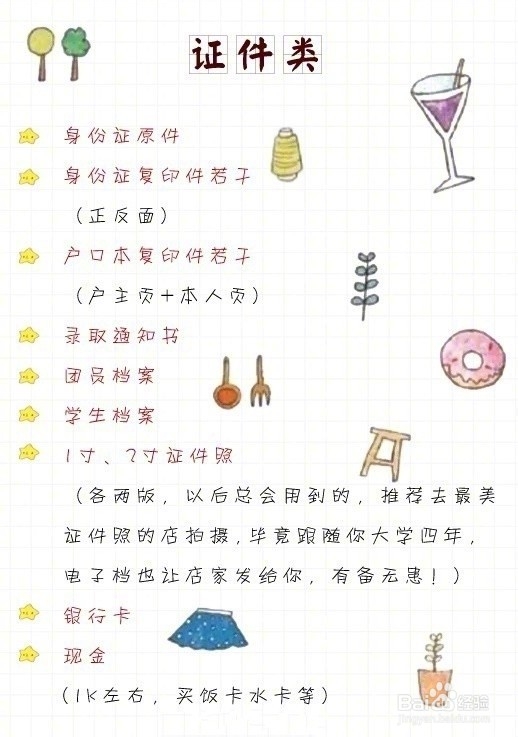 证件类
身份证原件
身份证复印件若干
（正反面）
户口本复印件若干
（户主页+本人页）
录取通知书
团员档案
学生档案
1寸、2寸证件照
（各两版，以后总会用到的，推荐去最美
证件照的店拍摄，毕竟跟随你大学四年，
电子档也让店家发给你，有备无患！）
银行卡
现金
（1K左右，买饭卡水卡等）
Baidu经验
jingyan.baidu.com